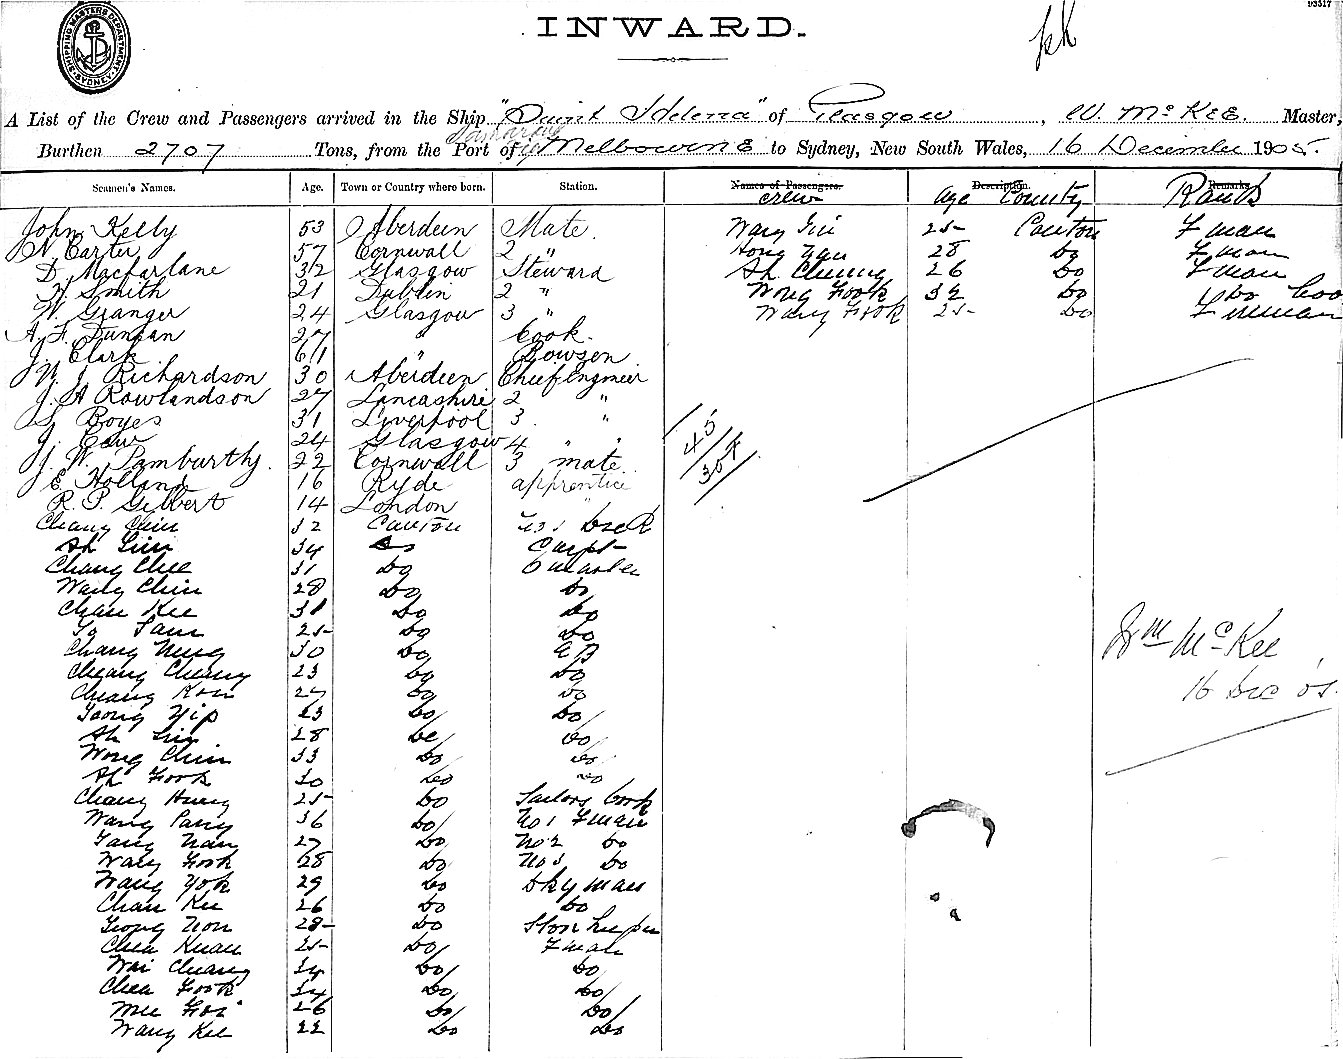 93517
SHIPPING MASTERS DEPARTMENT SYDNEY
INWARD.
A List of the Crew and Passengers arrived in the Ship "Saint Helena" of Glasgow, W. McKEE. Master,
Burthen 2707 Tons, from the Port of Melbourne to Sydney, New South Wales, 16 December 1905.
Seamen's Names. Age. Town or Country where born. Station. Names of Passengers. Description. Remarks.
crew age County Rank
John Kelly 53 Aberdeen Mate. 25 Canton Fman
N. Carter 57 Cornwall 2 " 28 Do Fman
D. Macfarlane 32 Glasgow Steward Ah Cheung 26 Do Fman
H. Smith 21 Dublin 2 " Wong Fook 32 do
W. Granger 24 Glasgow 3 " Wang Fook 25 Do
A. F. Duncan 27 " Cook.
J. Clark 61 " Bowsen
W. J. Richardson 30 Aberdeen Chief Engineir
J. A Rowlandson 27 Lancashire 2 "
S. Boyes 31 Liverpool 3. "
J. 24 Glasgow 4 " "
J. W. Pamburthy. 22 Cornwall 3 mate.
E. Holland 16 Ryde apprentice
R. P. Gilbert 14 London "
45/304
32 Canton
Ah 34 do Carpt
Chang Chee 31 do
Wang Chin 28 do do
Chan Kee 31 do do
25 do do
Chang 30 do
Cheang Cheang 23 do do
Cheang 27 do do
Yip 23 do do
Ah 28 do do
Wong Chin 33 do do
Ah Fook 30 do do
Chang Hung 25 do Sailors Cook
Wang Pang 36 do No 1 Fman
27 do No 2 do
Wang Fook 28 do No 3 do
Wang Yok 29 do Dkyman
Chan Kee 26 do do
28 do Storekeeper
25 do Fman
Wai Cheang 34 do do
Fook 34 do do
26 do do
Wang Kee 22 do do
Wm McKee
16 Dec 05.